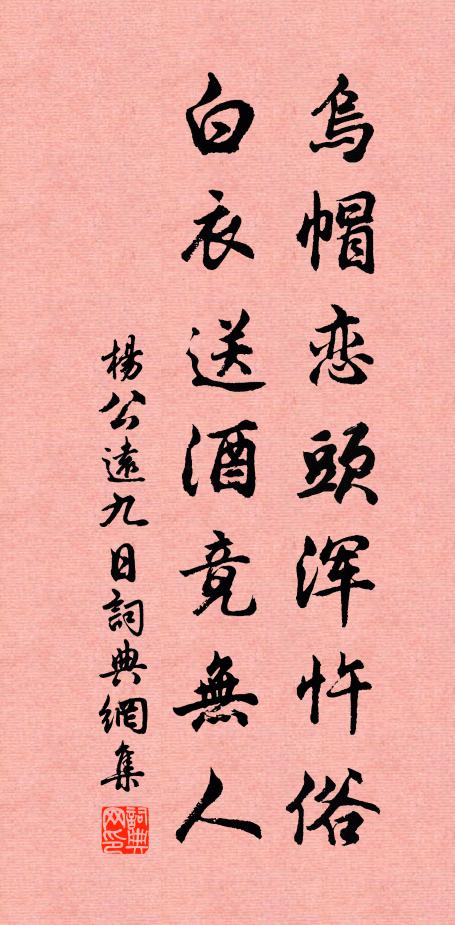 烏帽恋頭浑忤俗
白衣送酒竟無人
楊公遠九日詞典網集
詞典网印